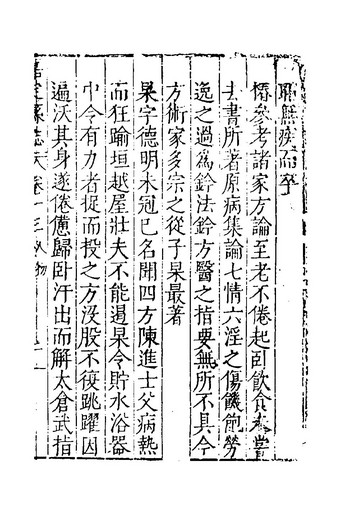 無疾而卒
椿參考諸家方論至老不倦起卧飲食未嘗
去書所著原病集論七情六淫之傷饑飽勞
逸之過為鈐法鈐方醫之指要無所不具今
方術家多宗之從子杲最著
杲字德明未冠已名聞四方陳進士父病熱
而狂踰垣越屋壯夫不能遏杲令貯水浴器
中令有力者捉而投之方沒股不復跳躍因
遍沃其身遂倦憊歸卧汗出而解太倉武指